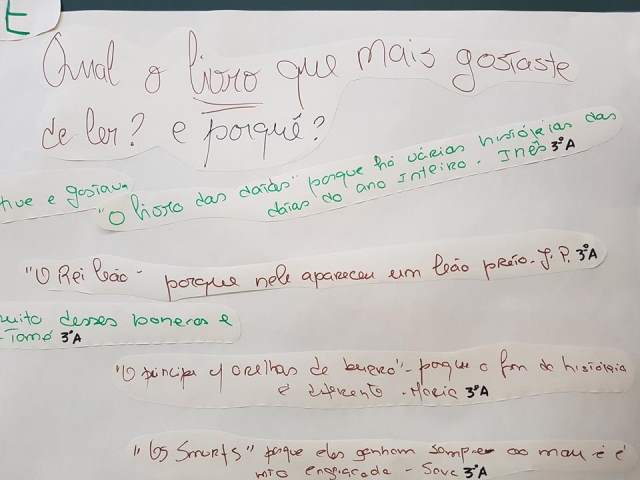 E
Qual o livro que mais gostaste
de ler? e porquê?
"O livro das datas" porque há várias histórias das
datas do ano inteiro. Inês 3ºA
tive e gostava
"O Rei Leão - porque nele apareceu um leão preto. J.P. 3ºA
muito desses bonecos e
- Tomé 3ºA
"O principe c/ orelhas de burro" - porque o fim da história
é diferente. Maria 3ºA
"Os Smurfs" porque eles ganham sempre ao mau e é
mto engraçado - Sara 3ºA